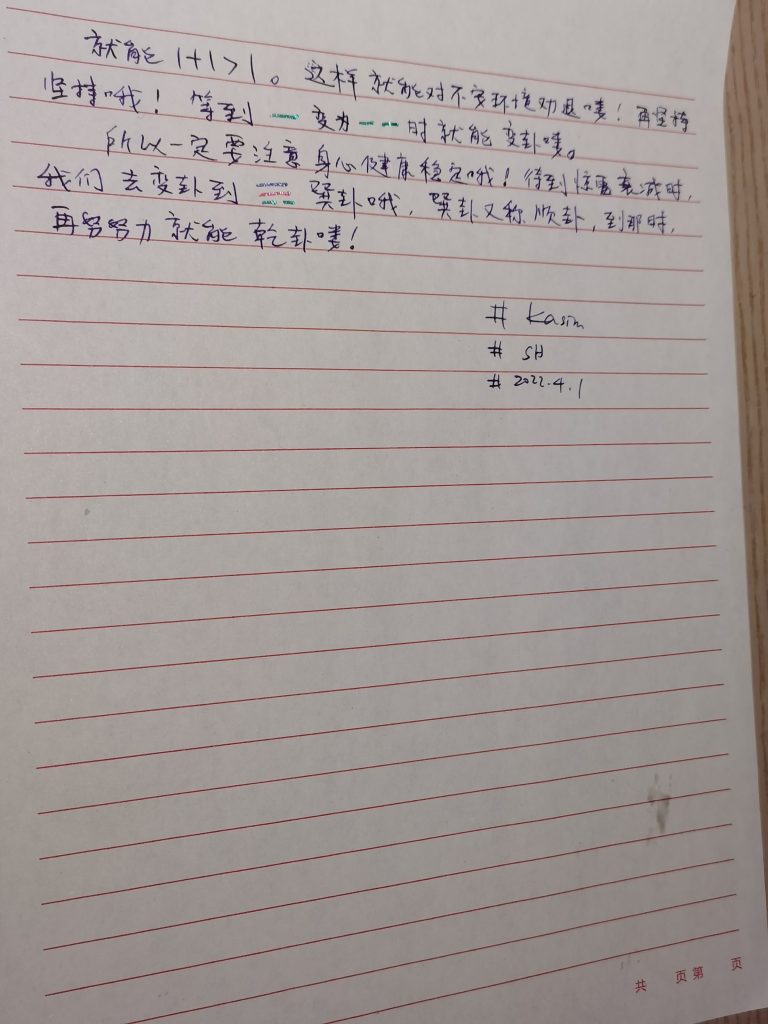 就能 1+1>1。这样就能对不安环境劝退喽！再坚持
坚持哦！等到 — 变为 -- 时就能变卦喽。
所以一定要注意身心健康稳定哦！待到惊衰减时，
我们去变卦到 ☴ 巽卦哦，巽卦又称顺卦，到那时，
再努努力就能乾卦喽！
# Kasim
# SH
# 2022.4.1
共 页第 页